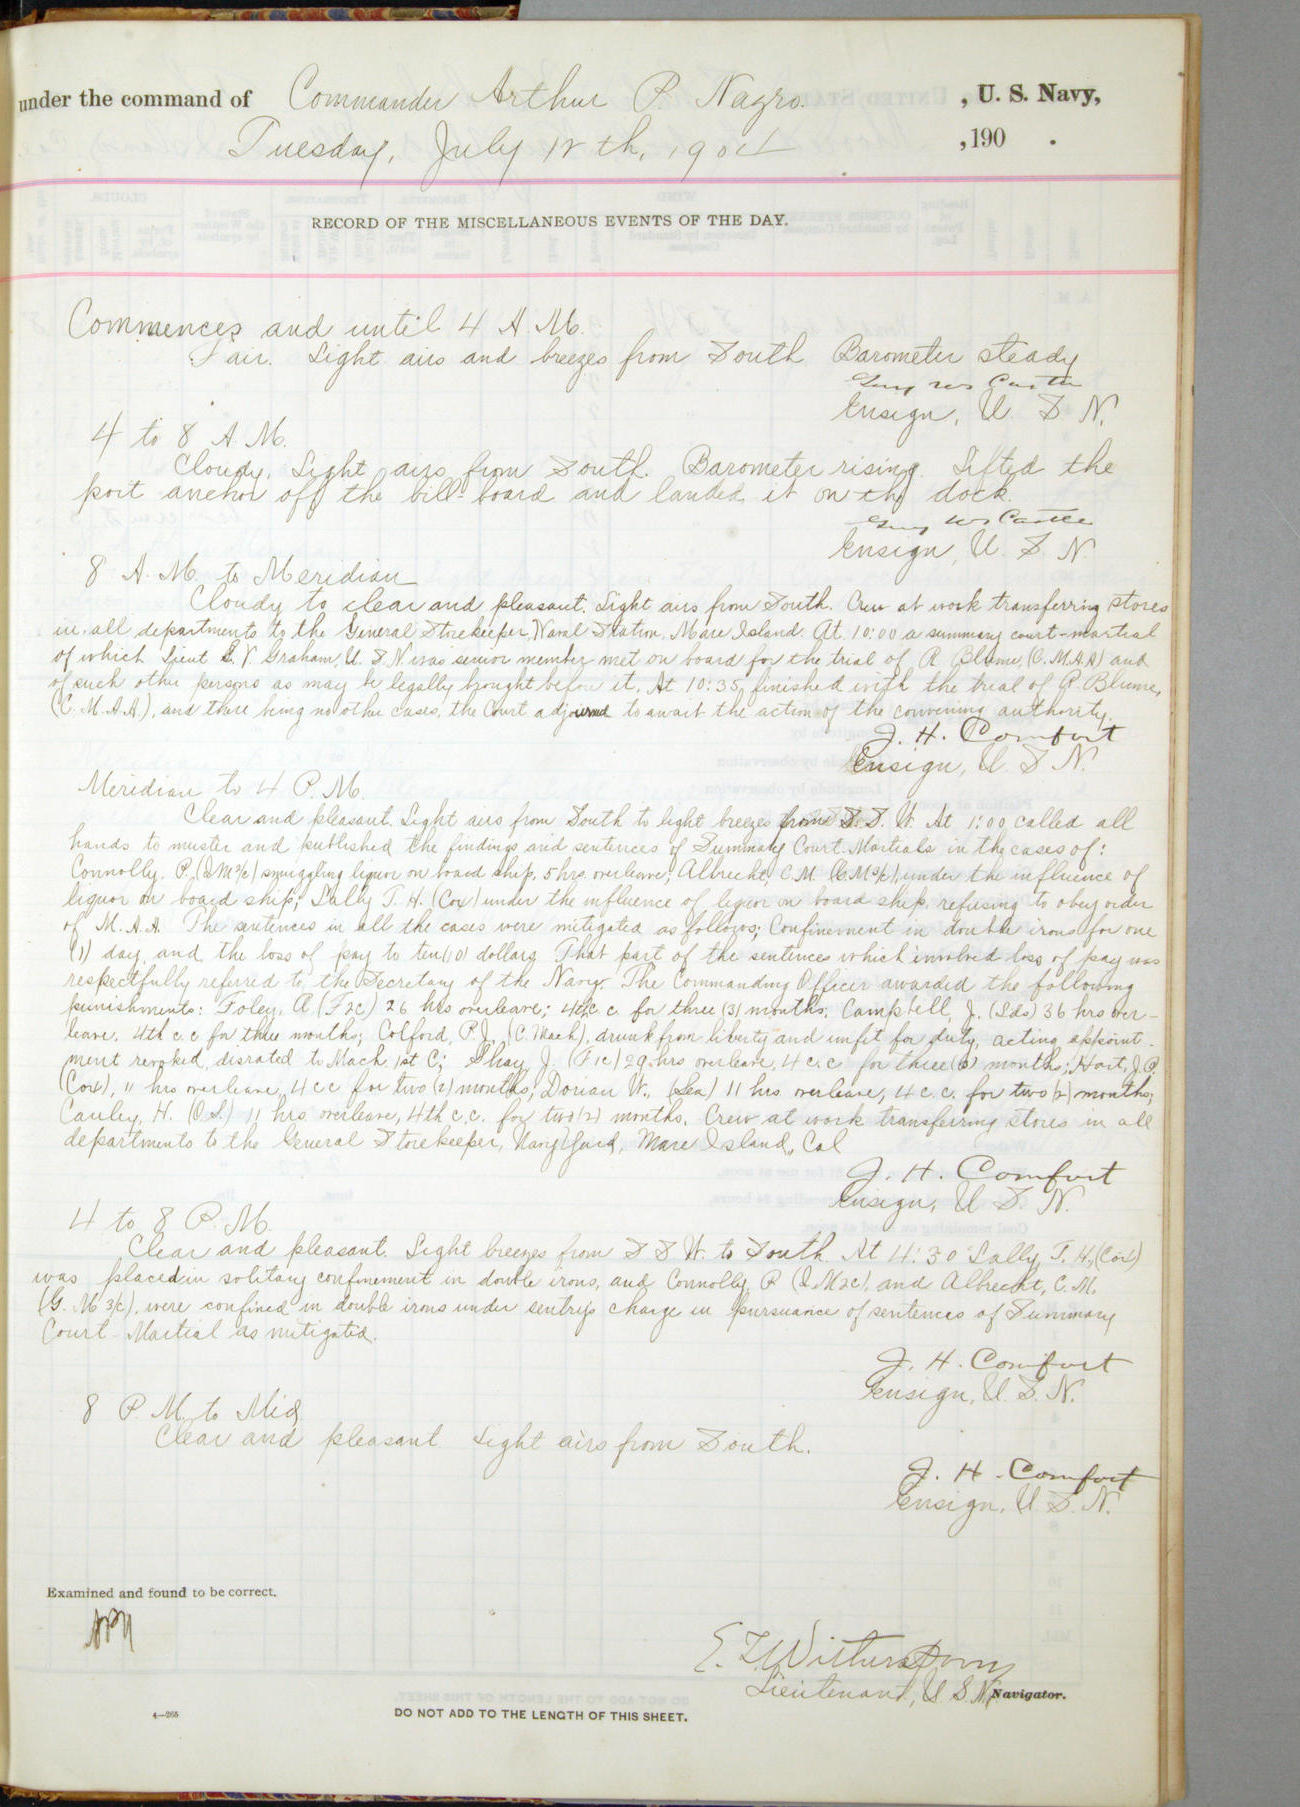 under the command of Commander Arthur P. Nazro. , U. S. Navy,
Tuesday, July 12th, 1904 , 190 .
RECORD OF THE MISCELLANEOUS EVENTS OF THE DAY.
Commences and until 4 A. M.
Fair. Light airs and breezes from South Barometer steady
Guy W S Castle
Ensign, U. S. N.
4 to 8 A. M.
Cloudy. Light airs from South. Barometer rising. Lifted the
port anchor off the bill-board and landed it on the dock.
Guy W S Castle
Ensign, U. S. N
8 A. M. to Meridian
Cloudy to clear and pleasant. Light airs from South. Crew at work transferring stores
in all departments to the General Storekeeper, Naval Station, Mare Island. At 10:00 a summary court-martial
of which Lieut S. V. Graham, U. S. N was senior member met on board for the trial of R. Blume, (C. M. A. A) and
of such other persons as may be legally brought before it. At 10:35 finished with the trial of R. Blume,
(C. M. A. A.), and there being no other cases, the Court adjourned to await the action of the convening authority.
J. H. Comfort
Ensign, U. S. N.
Meridian to 4 P. M.
Clear and pleasant. Light airs from South to light breezes from S. S. W. At 1:00 called all
hands to muster and published the findings and sentences of Summary Court Martials in the cases of:
Connolly. P., smuggling liquor on board ship, 5 hrs. overleave; Albrecht, C. M. under the influence of
liquor on board ship; Lally T. H. (Cox) under the influence of liquor on board ship, refusing to obey order
of M. A. A. The sentences in all the cases were mitigated as follows; Confinement in double irons for one
(1) day, and the loss of pay to ten (10) dollars. That part of the sentences which involved loss of pay was
respectfully referred to the Secretary of the Navy. The Commanding Officer awarded the following
punishments: Foley, A (F2c) 26 hrs overleave; 4th c. c. for three (3) months. Campbell, J. (Lds) 36 hrs over-
leave, 4th c. c for three months; Colford, P. J., (C. Mach), drunk from liberty and unfit for duty, acting appoint-
ment revoked, disrated to Mach. 1st C; Shay, J. (F1c) 29 hrs overleave, 4 c. c for three (3) months; Hart, J. P.
(Cox), 11 hrs overleave, 4 c c for two (2) months; Dorian W., (Sea) 11 hrs overleave, 4 c. c. for two (2) months;
Canley, H. (O. S.) 11 hrs overleave, 4th c. c. for two (2) months. Crew at work transferring stores in all
departments to the General Storekeeper, Navy Yard, Mare Island, Cal
J. H. Comfort
Ensign, U. S. N.
4 to 8 P. M.
Clear and pleasant. Light breezes from S S W. to South. At 4:30 Lally, T. H., (Cox)
was placed in solitary confinement in double irons, and Connolly, P. and Albrecht, C. M.
(G. M 3/c), were confined in double irons under sentry's charge in pursuance of sentences of Summary
Court-Martial as mitigated.
J. H. Comfort
Ensign, U. S. N.
8 P. M. to Mid
Clear and pleasant Light airs from South.
J. H. Comfort
Ensign, U. S. N.
Examined and found to be correct.
APN
E. T. Witherspoon
Lieutenant, U. S. N, Navigator.
4—265
DO NOT ADD TO THE LENGTH OF THIS SHEET.